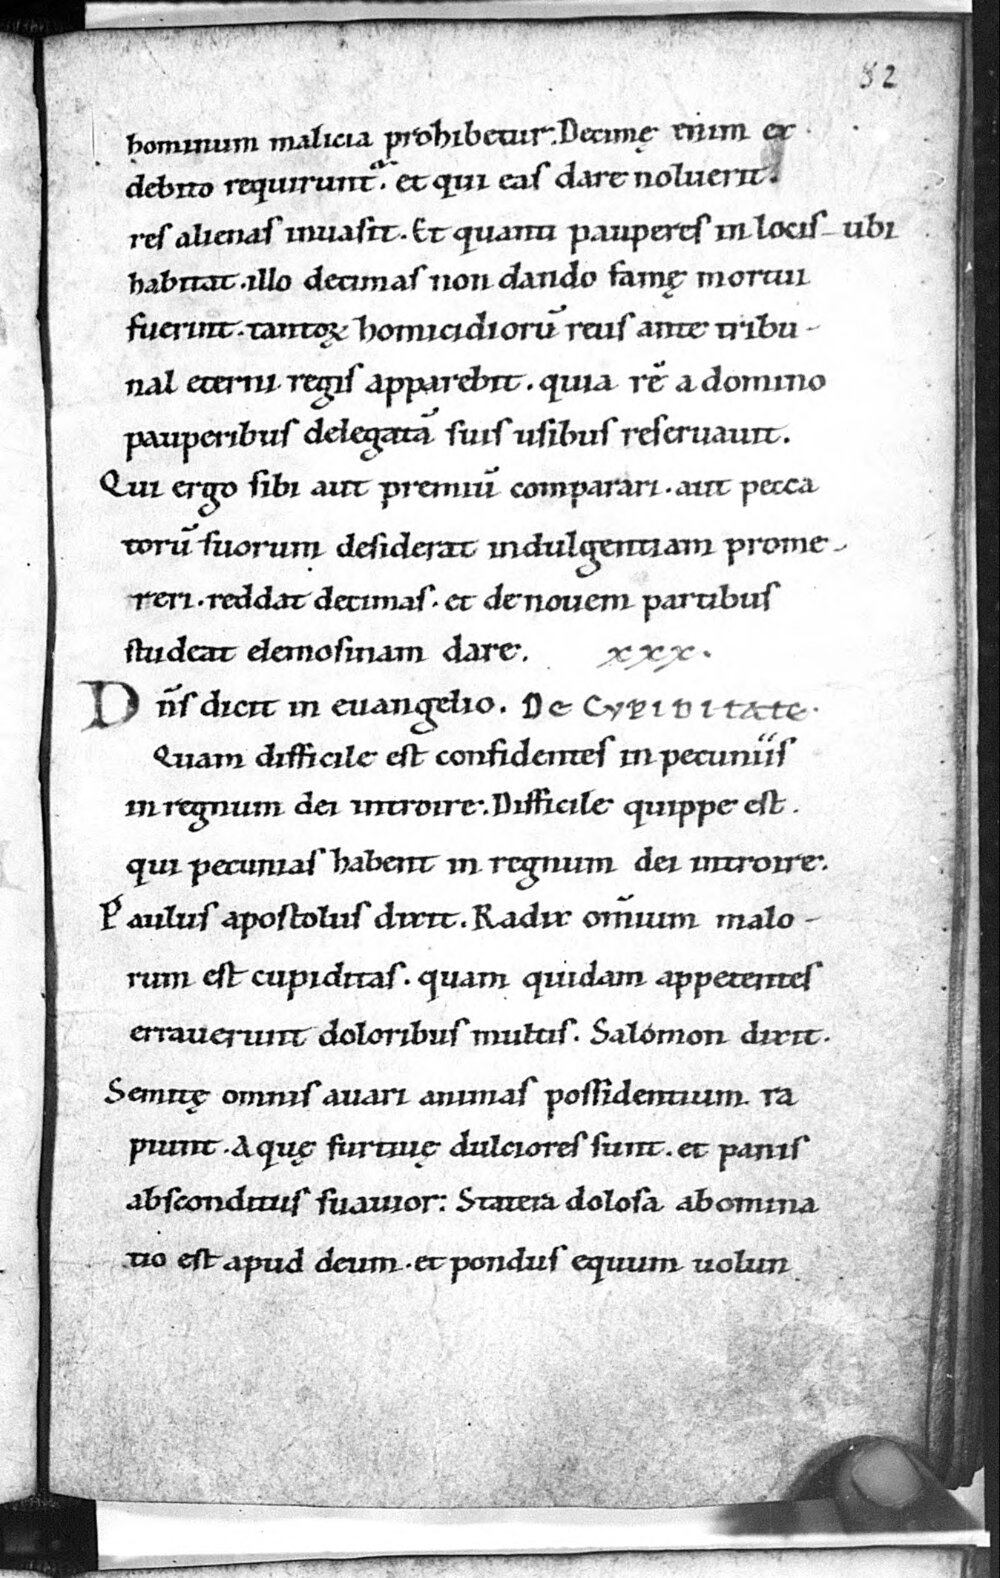 82
hominum malicia prohibetur. Decimę enim ex
debito requiruntur. et qui eas dare noluerit.
res alienas inuasit. Et quanti pauperes in locis ubi
habitat. illo decimas non dando famę mortui
fuerint. tantoꝝ homicidiorū reus ante tribu-
nal eterni regis apparebit. quia rē a domino
pauperibus delegatā suis usibus reseruauit.
Qui ergo sibi aut premiū comparari. aut pecca
torū suorum desiderat indulgentiam prome-
reri. reddat decimas. et de nouem partibus
studeat elemosinam dare. xxx.
Dn̄s dicit in euangelio. De Cvpiditate.
Quam difficile est confidentes in pecuniis
in regnum dei introire. Difficile quippe est.
qui pecunias habent in regnum dei introire.
Paulus apostolus dixit. Radix om̄ium malo-
rum est cupiditas. quam quidam appetentes
errauerunt doloribus multis. Salomon dixit.
Semitę omnis auari animas possidentium ra
piunt. Aquę furtiuę dulciores sunt. et panis
absconditus suauior: Statera dolosa abomina
tio est apud deum. et pondus equum uolun